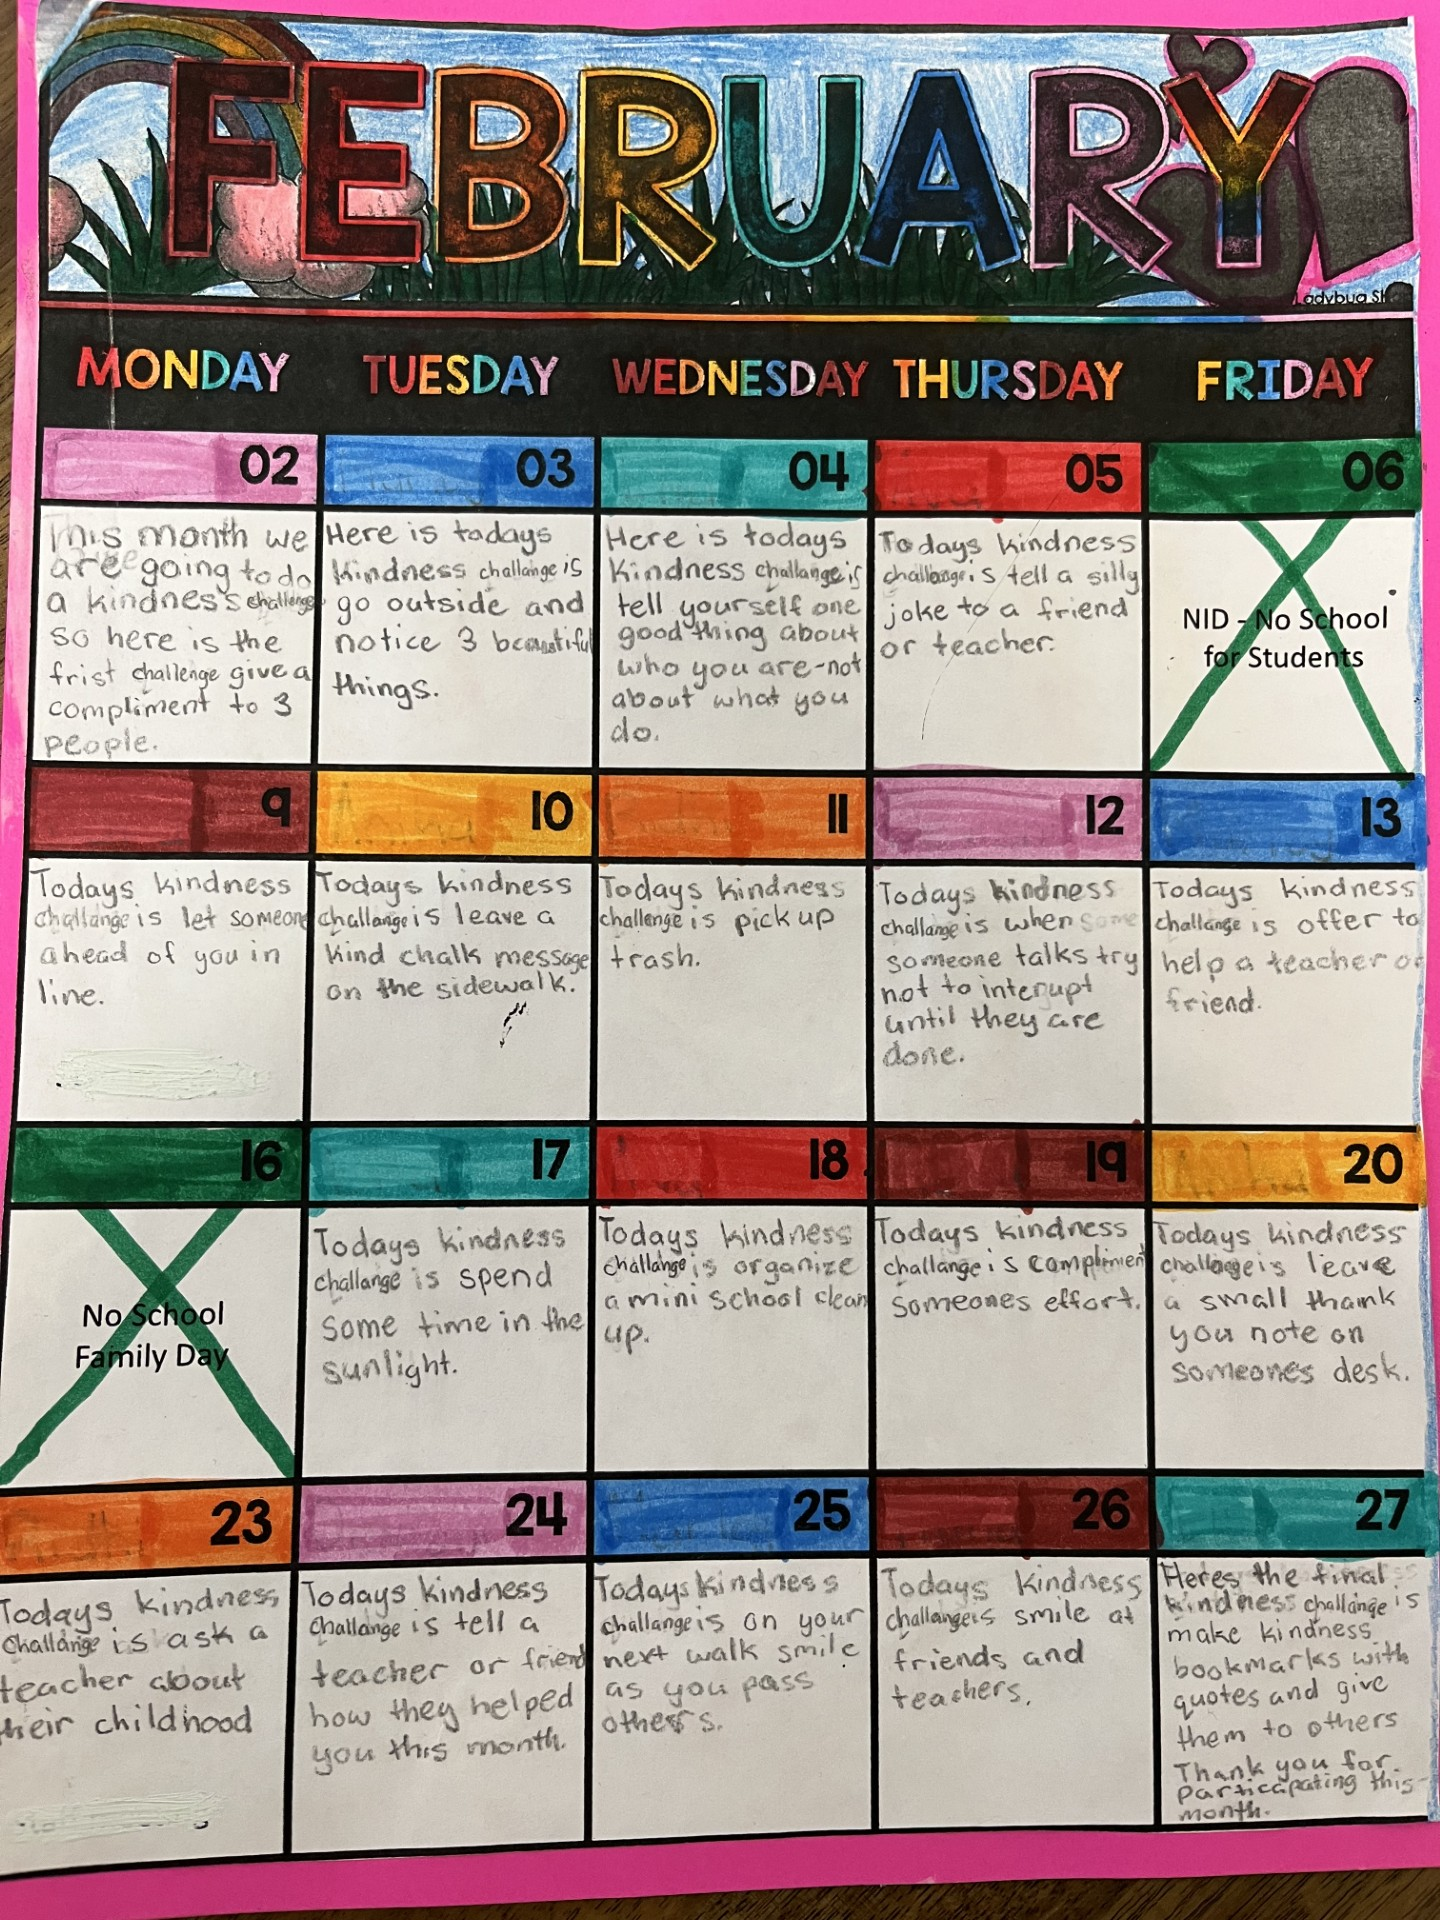 FEBRUARY
Ladybug
MONDAY TUESDAY WEDNESDAY THURSDAY FRIDAY
02
This month we
are going to do
a kindness challenge
so here is the
frist challenge give a
compliment to 3
people.
03
Here is todays
kindness challange is
go outside and
notice 3 beautiful
things.
04
Here is todays
kindness challange is
tell yourself one
good thing about
who you are-not
about what you
do.
05
Todays kindness
challange is tell a silly
joke to a friend
or teacher.
06
NID - No School
for Students
9
Todays kindness
challange is let someone
ahead of you in
line.
10
Todays kindness
challange is leave a
kind chalk message
on the sidewalk.
11
Todays kindness
challenge is pick up
trash.
12
Todays kindness
challange is when some
someone talks try
not to interupt
until they are
done.
13
Todays kindness
challange is offer to
help a teacher or
friend.
16
No School
Family Day
17
Todays kindness
challange is spend
some time in the
sunlight.
18
Todays kindness
challange is organize
a mini school clean
up.
19
Todays kindness
challange is compliment
someones effort.
20
Todays kindness
challange is leave
a small thank
you note on
someones desk.
23
Todays kindness
challange is ask a
teacher about
their childhood
24
Todays kindness
challange is tell a
teacher or friend
how they helped
you this month.
25
Todays kindness
challange is on your
next walk smile
as you pass
others.
26
Todays kindness
challange is smile at
friends and
teachers.
27
Heres the final
kindness challange is
make kindness
bookmarks with
quotes and give
them to others
Thank you for
participating this
month.